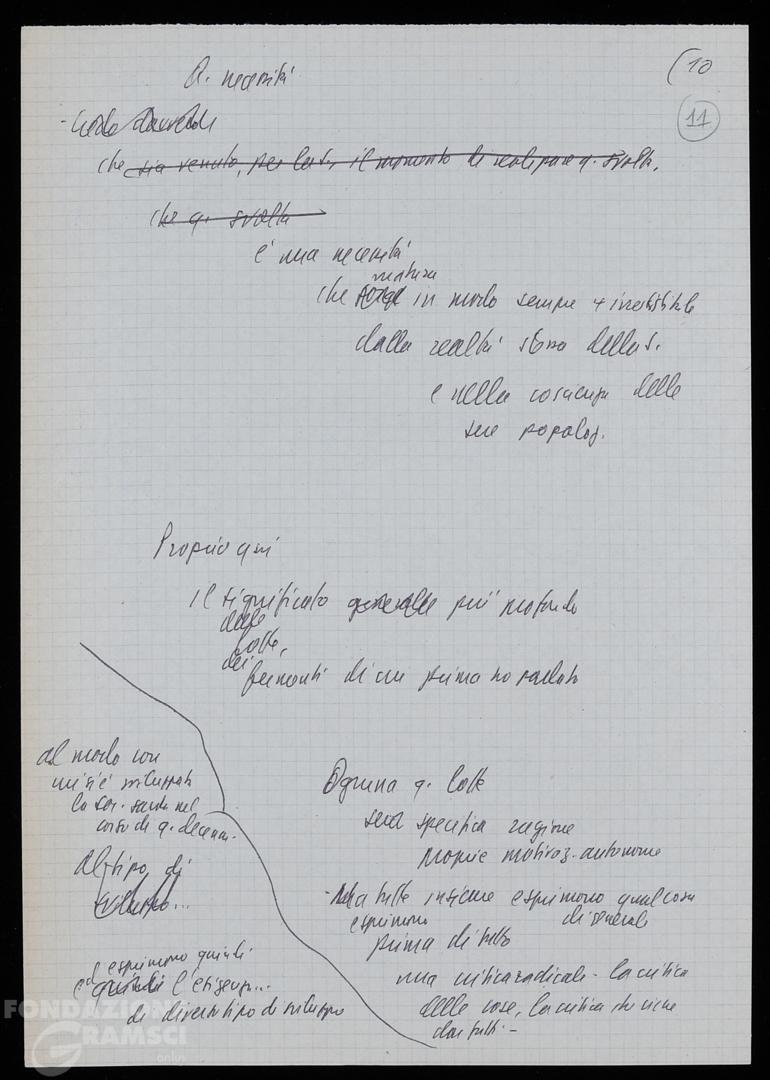 (10
11
Q. necessità
- Credo davvero
che sia venuto, per la S., il momento di realizzare q. svolta.
che q. svolta
è una necessità
matura
che in modo sempre + irresistibile
dalla realtà stessa della S.
e nella coscienza delle
sue popolaz.
Proprio qui
il significato generale più profondo
delle
lotte,
dei
fermenti di cui prima ho parlato
al modo con
cui si è sviluppata
la soc. sarda nel
corso di q. decenn.
Al tipo di
sviluppo...
Ognuna q. lotte
sua specifica ragione
proprie motivaz. autonome
- Ma tutte insieme esprimono qualcosa
esprimono di generale
prima di tutto
una critica radicale - la critica
delle cose, la critica che viene
dai fatti -
ed esprimono quindi
e quindi l'esigenza...
di diverso tipo di sviluppo
FONDAZIONE
GRAMSCI
onlus